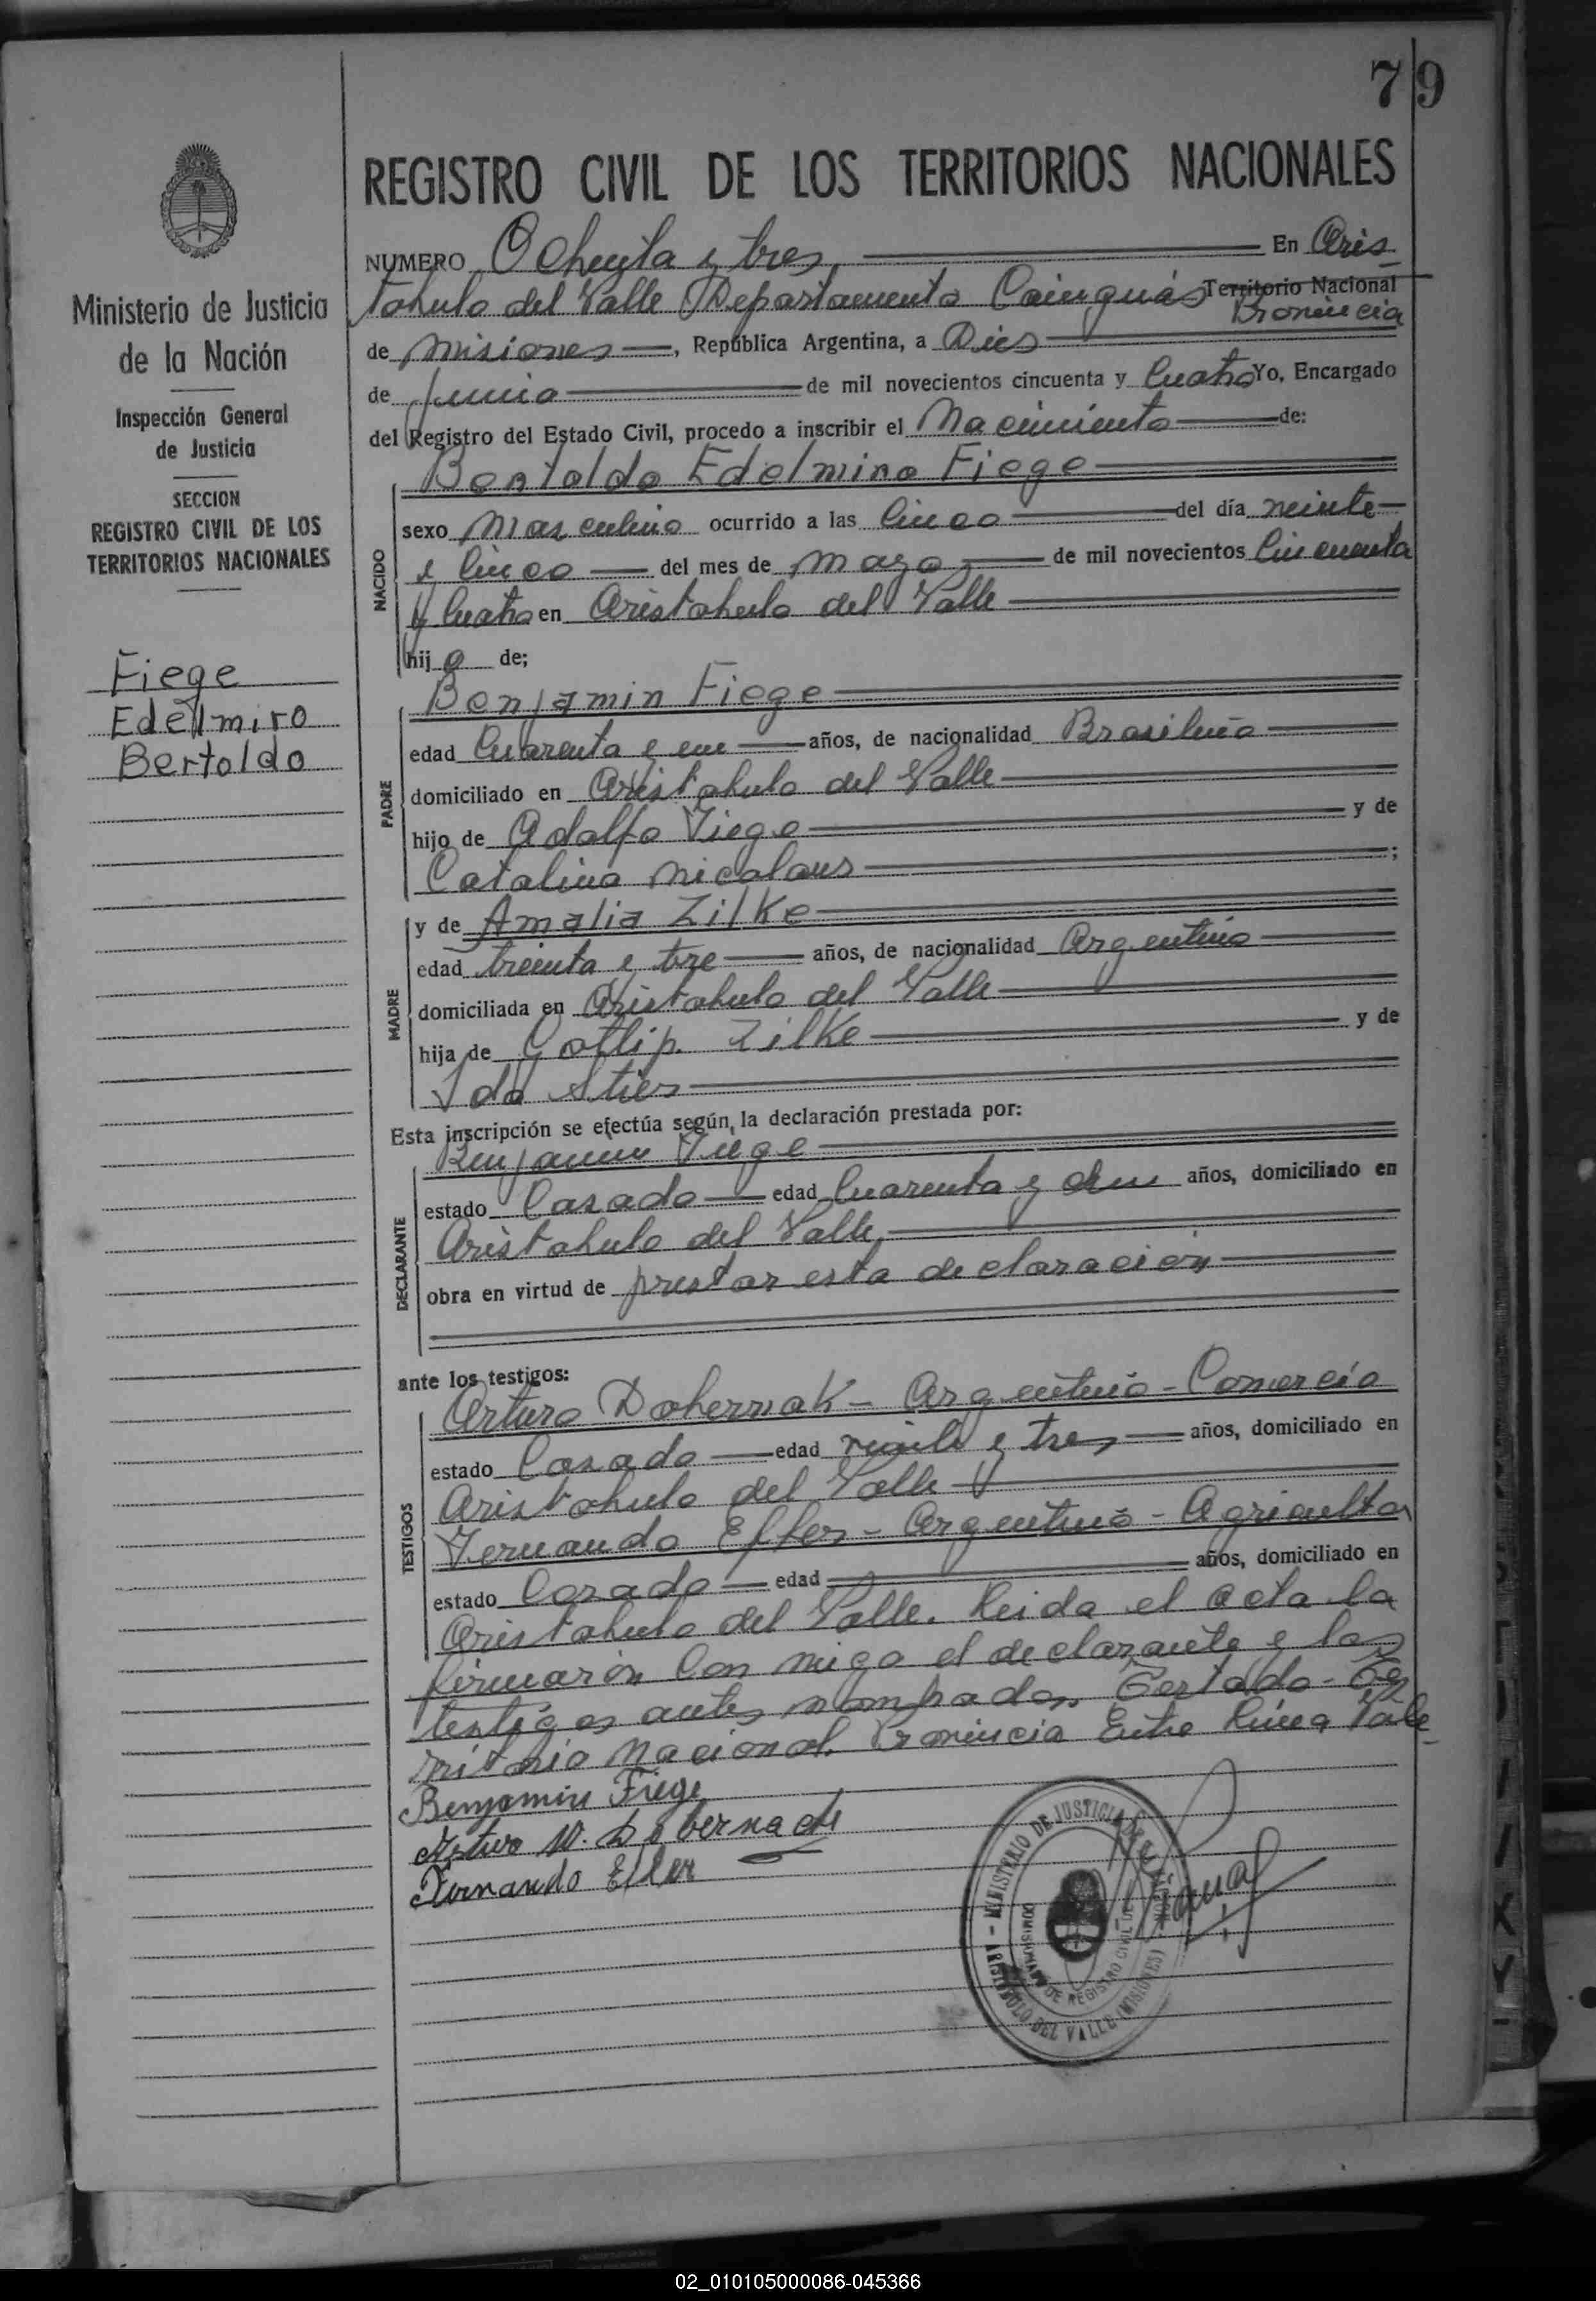 7 9
REGISTRO CIVIL DE LOS TERRITORIOS NACIONALES
NUMERO Ochenta y tres En Aris
tobulo del Valle Departamento Cainguás Territorio Nacional
Provincia
de Misiones, República Argentina, a Dies
de Junio de mil novecientos cincuenta y Cuatro Yo, Encargado
del Registro del Estado Civil, procedo a inscribir el Nacimiento de:
Bertoldo Edelmiro Fiege
NACIDO
sexo Masculino ocurrido a las Cinco del día veinte
y Cinco del mes de Mayo de mil novecientos Cincuenta
y Cuatro en Aristobulo del Valle
hijo de;
PADRE
Benjamin Fiege
edad Cuarenta y un años, de nacionalidad Brasileño
domiciliado en Aristobulo del Valle
hijo de Adolfo Fiege y de
Catalina Nicolaus;
MADRE
y de Amalia Zilke
edad treinta y tre años, de nacionalidad Argentina
domiciliada en Aristobulo del Valle
hija de Gotlip. Zilke y de
Ida Stier
Esta inscripción se efectúa según la declaración prestada por:
DECLARANTE
Benjamin Fiege
estado Casado edad Cuarenta y un años, domiciliado en
Aristobulo del Valle,
obra en virtud de prestar esta declaración
ante los testigos:
TESTIGOS
Arturo Dobernak - Argentino - Comercio
estado Casado edad veinte y tres años, domiciliado en
Aristobulo del Valle
Fernando Eller - Argentino - Agricultor
estado Casado edad años, domiciliado en
Aristobulo del Valle. Leida el acta la
firmarón Con migo el declarante y los
testigos antes nombrados. Testado - Te
rritorio Nacional. Provincia Entre Linea Vale
Benjamin Fiege
Arturo W. Dobernack
Fernando Eller
MINISTERIO DE JUSTICIA
REGISTRO CIVIL DE
ARISTOBULO DEL VALLE (MISIONES)
Ministerio de Justicia
de la Nación
Inspección General
de Justicia
SECCION
REGISTRO CIVIL DE LOS
TERRITORIOS NACIONALES
Fiege
Edelmiro
Bertoldo
02_010105000086-045366